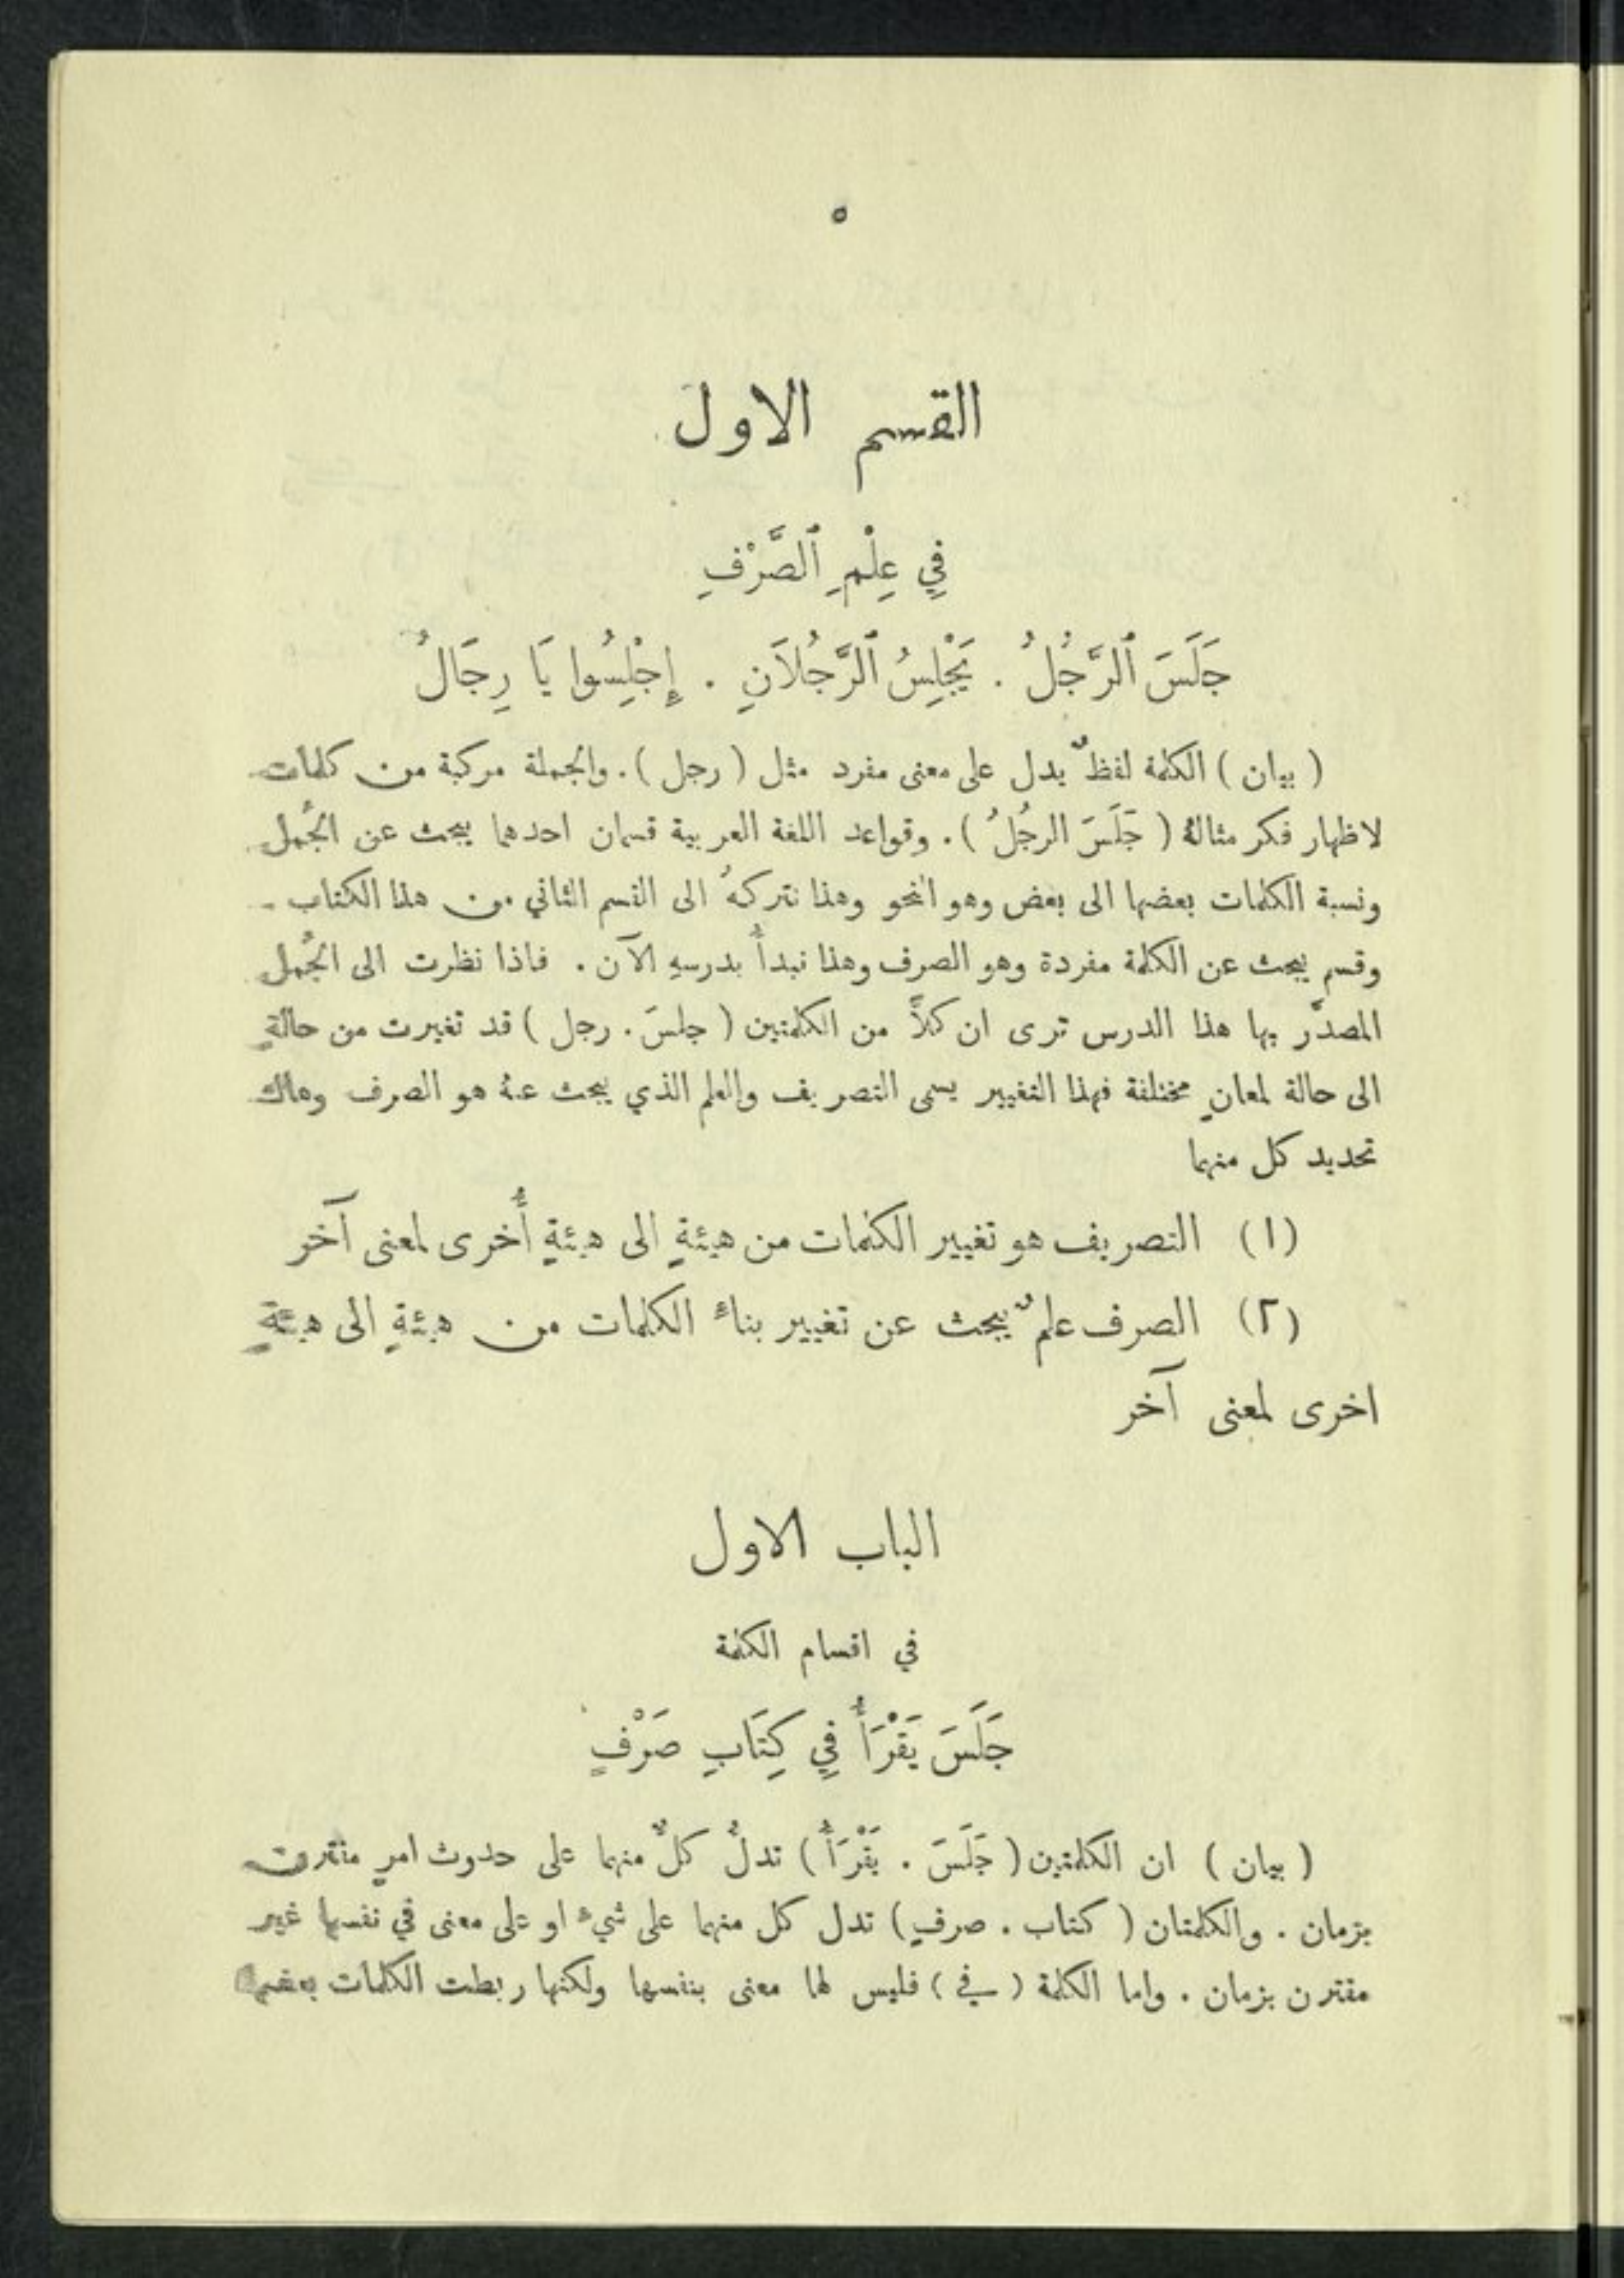 ٥
القسم الاول
فِي عِلْمِ ٱلصَّرْفِ
جَلَسَ ٱلرَّجُلُ . يَجْلِسُ ٱلرَّجُلَانِ . إِجْلِسُوا يَا رِجَالُ
( بيان ) الكلمة لفظٌ يدل على معنى مفرد مثل ( رجل ) . والجملة مركبة من كلمات
لاظهار فكر مثالهُ ( جَلَسَ الرجُلُ ) . وقواعد اللغة العربية قسمان احدهما يبحث عن الجُمل
ونسبة الكلمات بعضها الى بعض وهو النحو وهذا نتركهُ الى القسم الثاني من هذا الكتاب
وقسم يبحث عن الكلمة مفردة وهو الصرف وهذا نبدأُ بدرسهِ الآن . فاذا نظرت الى الجُمل
المصدَّر بها هذا الدرس ترى ان كلاًّ من الكلمتين ( جلسَ . رجل ) قد تغيرت من حالةٍ
الى حالة لمعانٍ مختلفة فهذا التغيير يسمى التصريف والعلم الذي يبحث عنهُ هو الصرف وهاك
تحديد كل منهما
(١) التصريف هو تغيير الكلمات من هيئةٍ الى هيئةٍ أُخرى لمعنى آخر
(٢) الصرف علمٌ يبحث عن تغيير بناءِ الكلمات من هيئةٍ الى هيئةٍ
اخرى لمعنى آخر
الباب الاول
في اقسام الكلمة
جَلَسَ يَقْرَأُ فِي كِتَابِ صَرْفٍ
( بيان ) ان الكلمتين ( جَلَسَ . يَقْرَأُ ) تدلُّ كلٌّ منهما على حدوث امرٍ مقترن
بزمان . والكلمتان ( كتاب . صرفٍ ) تدل كل منهما على شيءٍ او على معنى في نفسها غير
مقترن بزمان . واما الكلمة ( في ) فليس لها معنى بنفسها ولكنها ربطت الكلمات بعضها